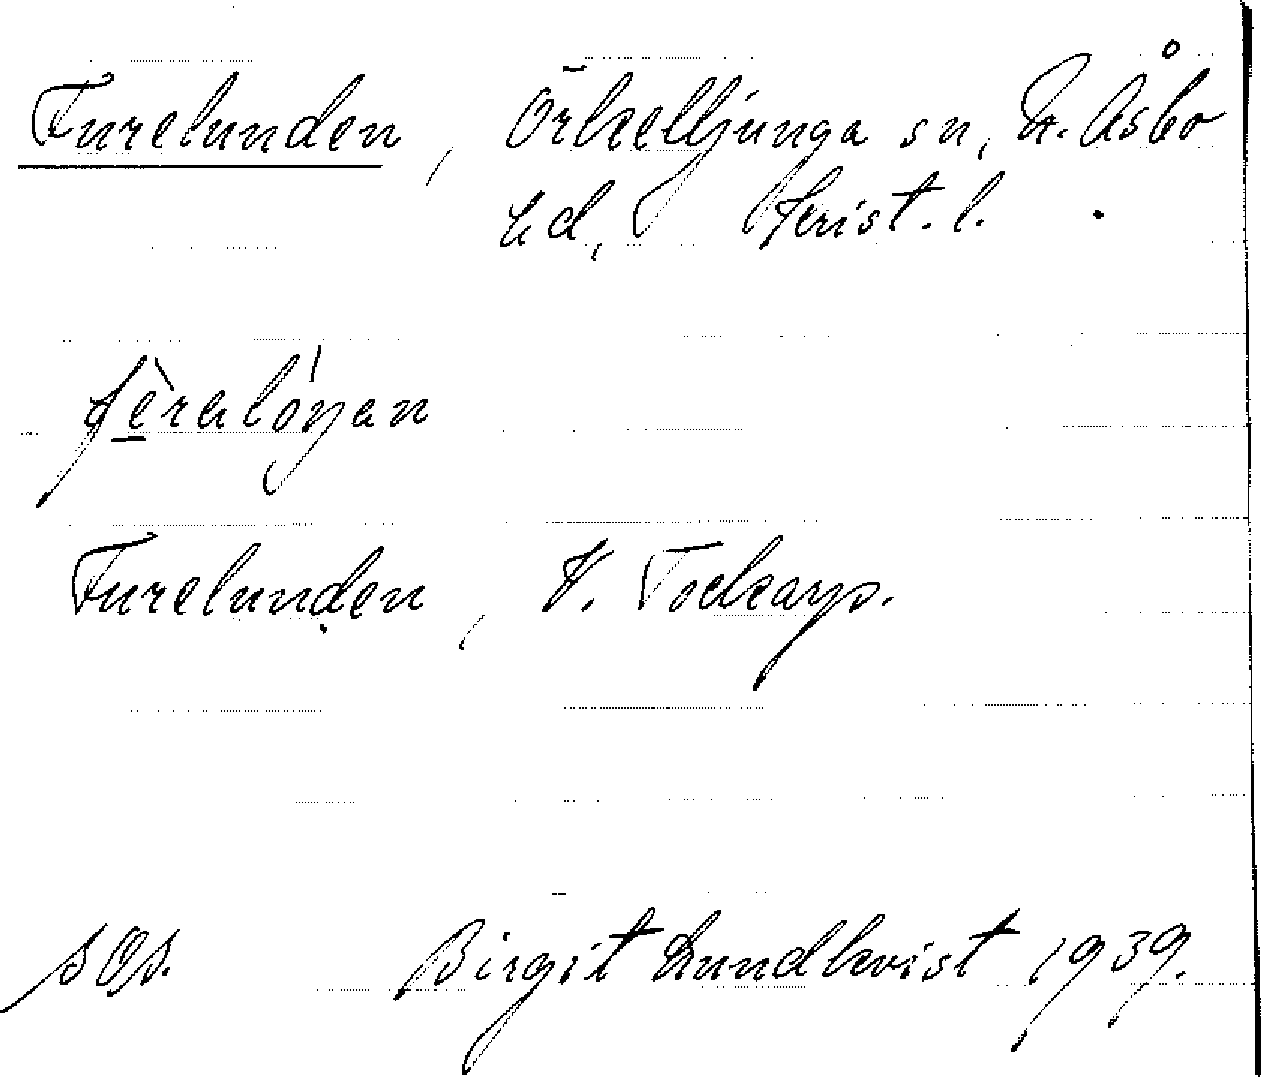 Furelunden, Örkelljunga sn, N. Åsbo
hd, Krist. l.
Furelunden, V. Tockarp.
sos. Birgit Lundkvist 1939.